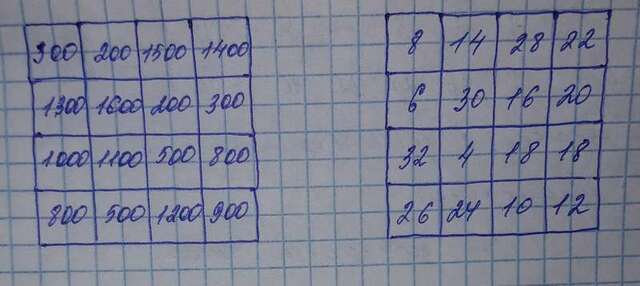 300 200 1500 1400 8 14 28 22
1300 1600 200 300 6 30 16 20
1000 1100 500 800 32 4 18 18
800 500 1200 900 26 24 10 12